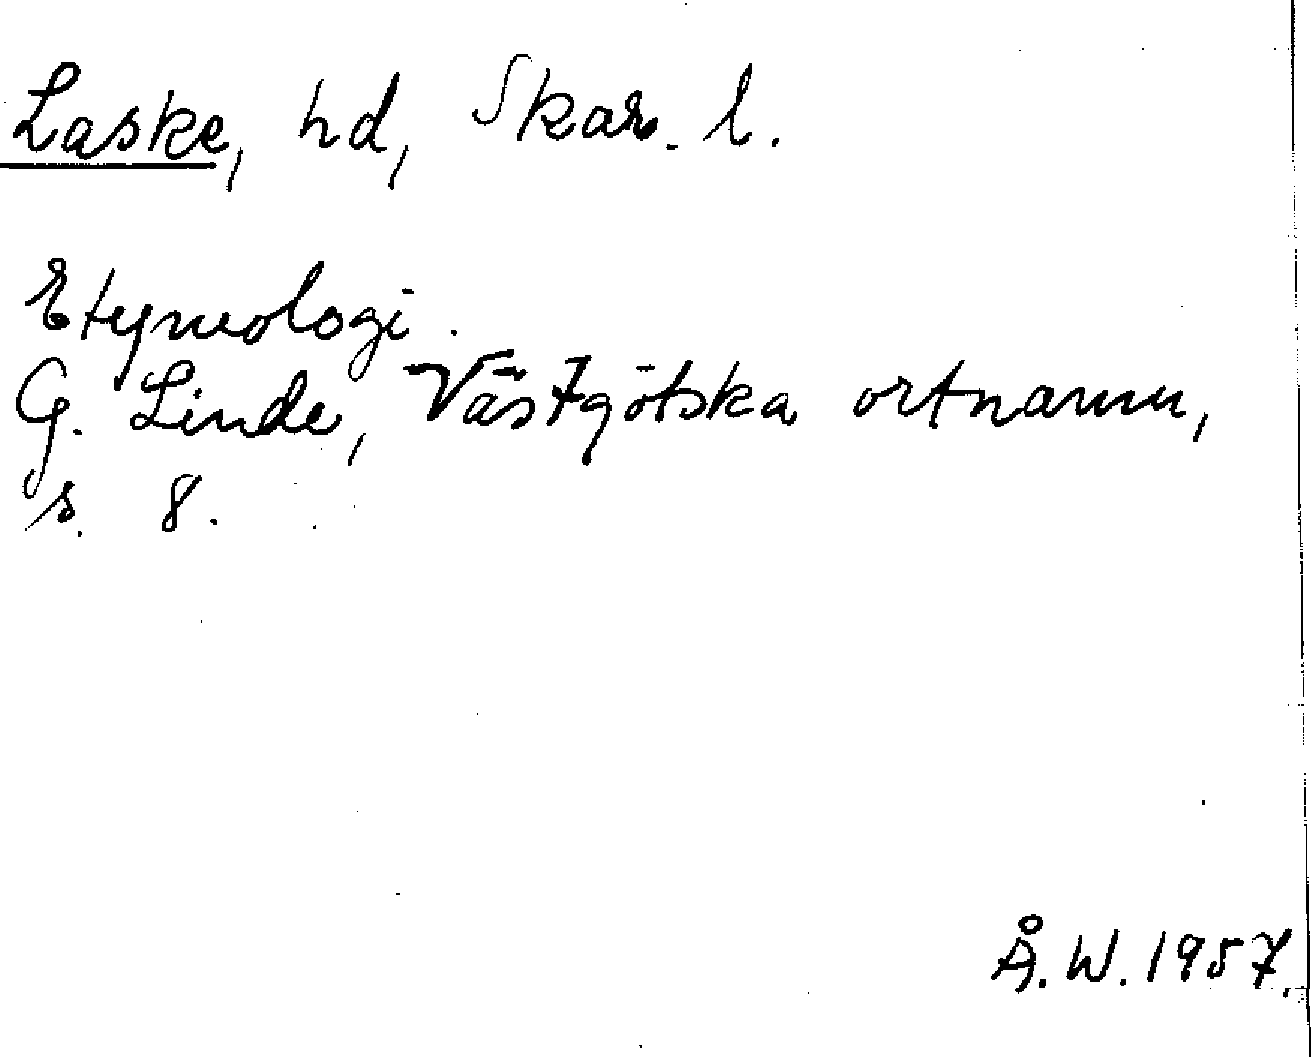 Laske, hd, Skar. l.
Etymologi.
G. Linde, Västgötska ortnamn,
s. 8.
Å. W. 1957.